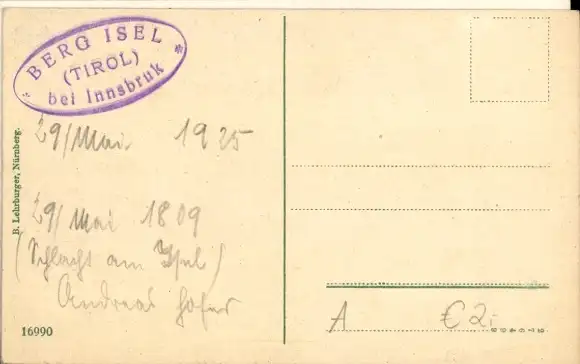 * BERG ISEL *
(TIROL)
bei Innsbruk
29/Mai 1925
B. Lehrburger, Nürnberg.
29/Mai 1809
(Schlacht am Isel)
Andreas Hofer
16990
A €2,-